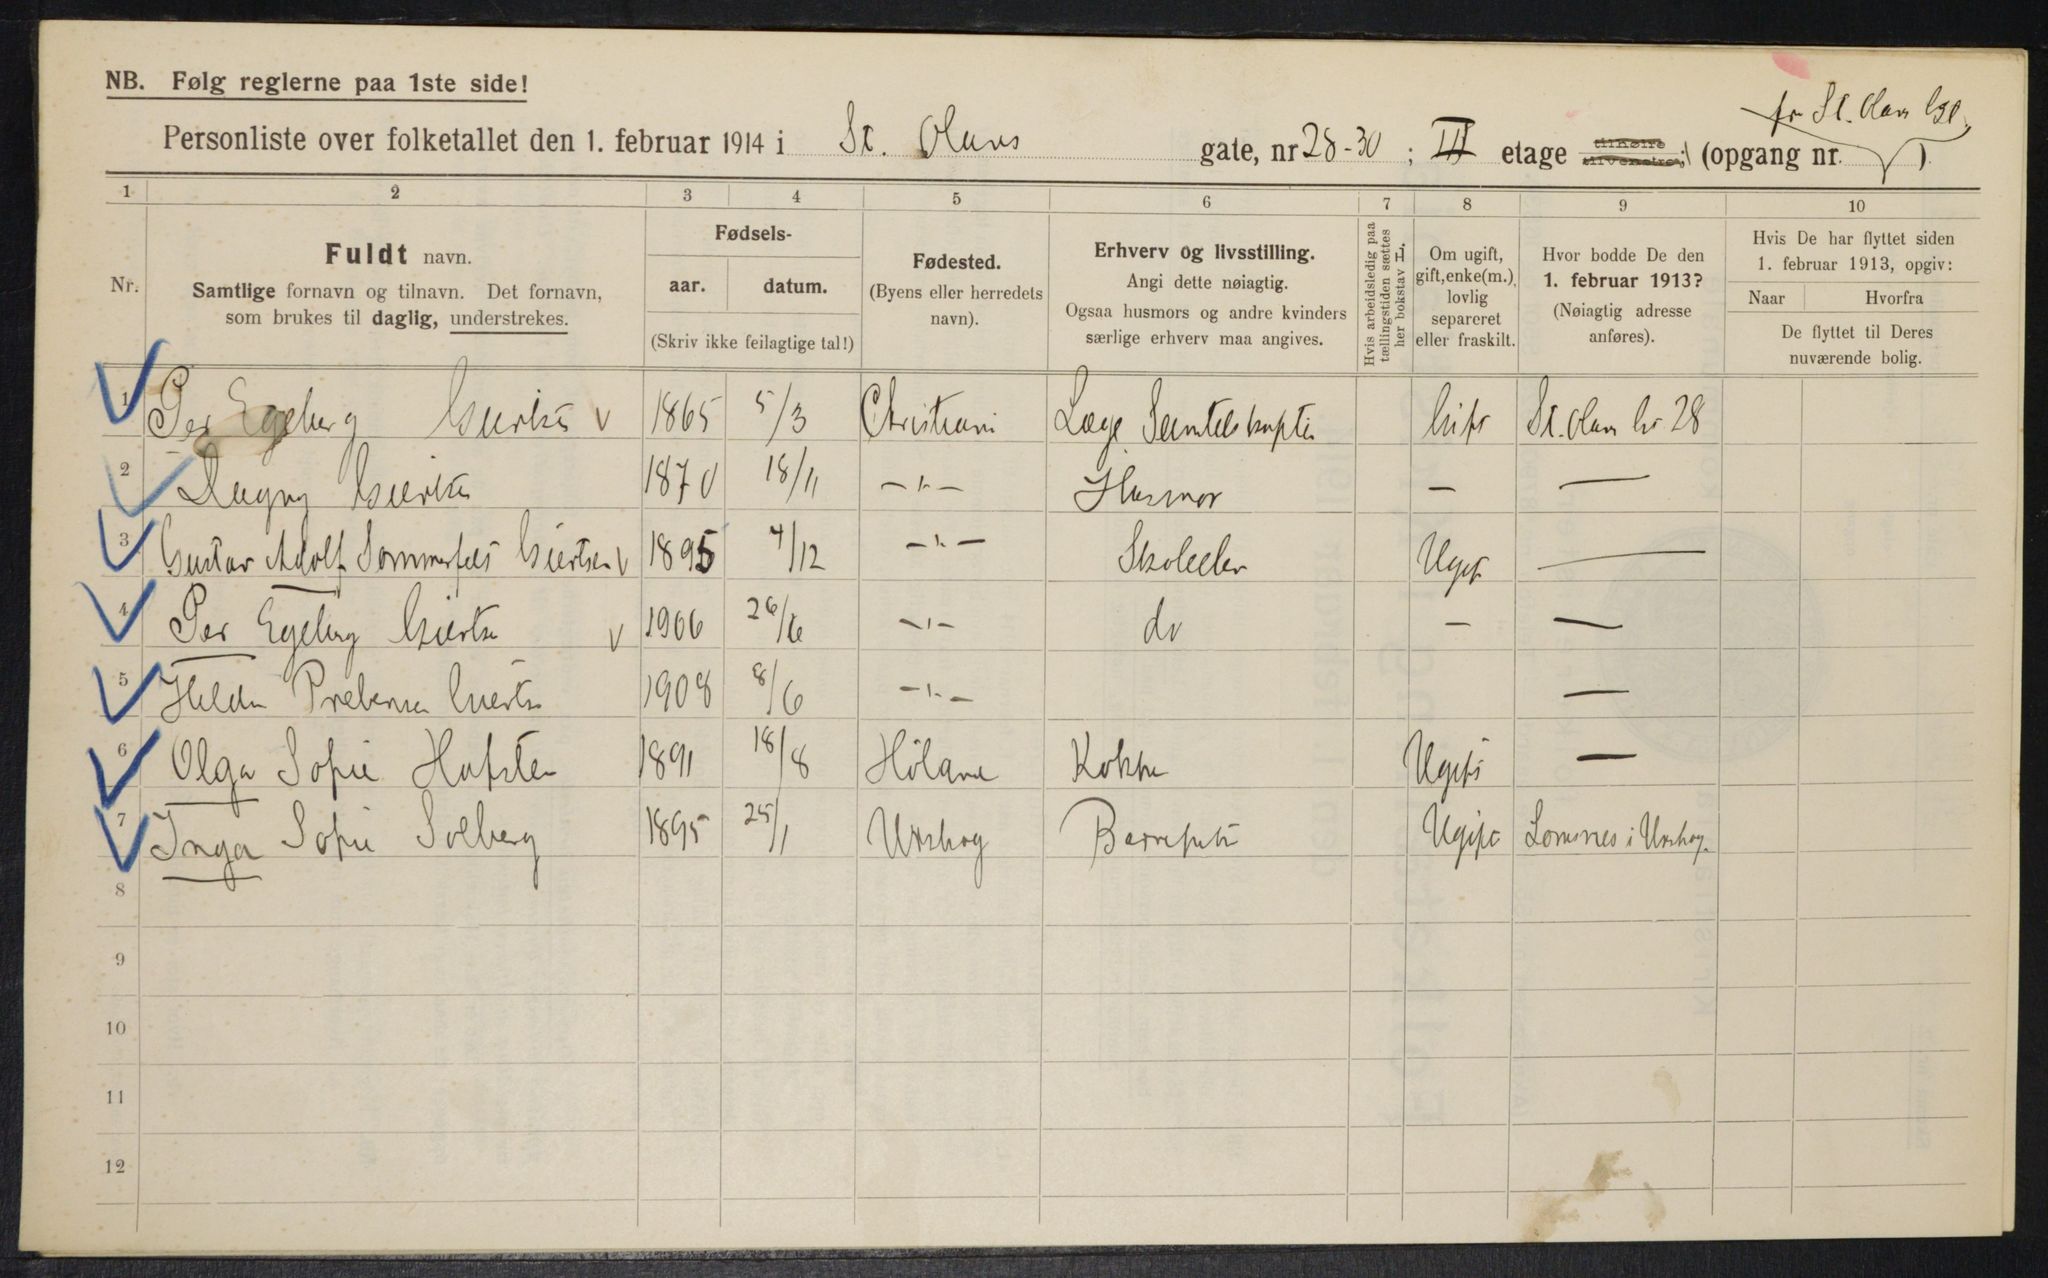 NB. Følg reglerne paa 1ste side!
fr St. Olavs
Personliste over folketallet den 1. februar 1914 i St. Olavs gate, nr 28-30; III etage tilhøire tilvenstre; (opgang nr. )
1 2 3 4 5 6 7 8 9 10
Nr.
Fuldt navn.
Samtlige fornavn og tilnavn. Det fornavn,
som brukes til daglig, understrekes.
Fødsels-
aar. datum.
(Skriv ikke feilagtige tal!)
Fødested.
(Byens eller herredets
navn).
Erhverv og livsstilling.
Angi dette nøiagtig.
Ogsaa husmors og andre kvinders
særlige erhverv maa angives.
Hvis arbeidsledig paa
tællingstiden sættes
her bokstav L.
Om ugift,
gift, enke(m.),
lovlig
separeret
eller fraskilt.
Hvor bodde De den
1. februar 1913?
(Nøiagtig adresse
anføres).
Hvis De har flyttet siden
1. februar 1913, opgiv:
Naar Hvorfra
De flyttet til Deres
nuværende bolig.
1 Per Egeberg v 1865 5/3 Christiani Læge Gift St. Olavs 28
2 Dagny 1870 18/11 -"- Husmor — —
3 Gustav Adolf Sommerfelt Giertsen v 1895 4/12 -"- Skoleelev Ugift —
4 Per Egeberg v 1906 26/6 -"- do — —
5 Hilda 1908 8/6 -"- —
6 Olga Sofie Hafsten 1891 18/8 Høland Kokke Ugift —
7 Inga Sofie Solberg 1895 25/1 Urskog Ugift i Urskog
8
9
10
11
12